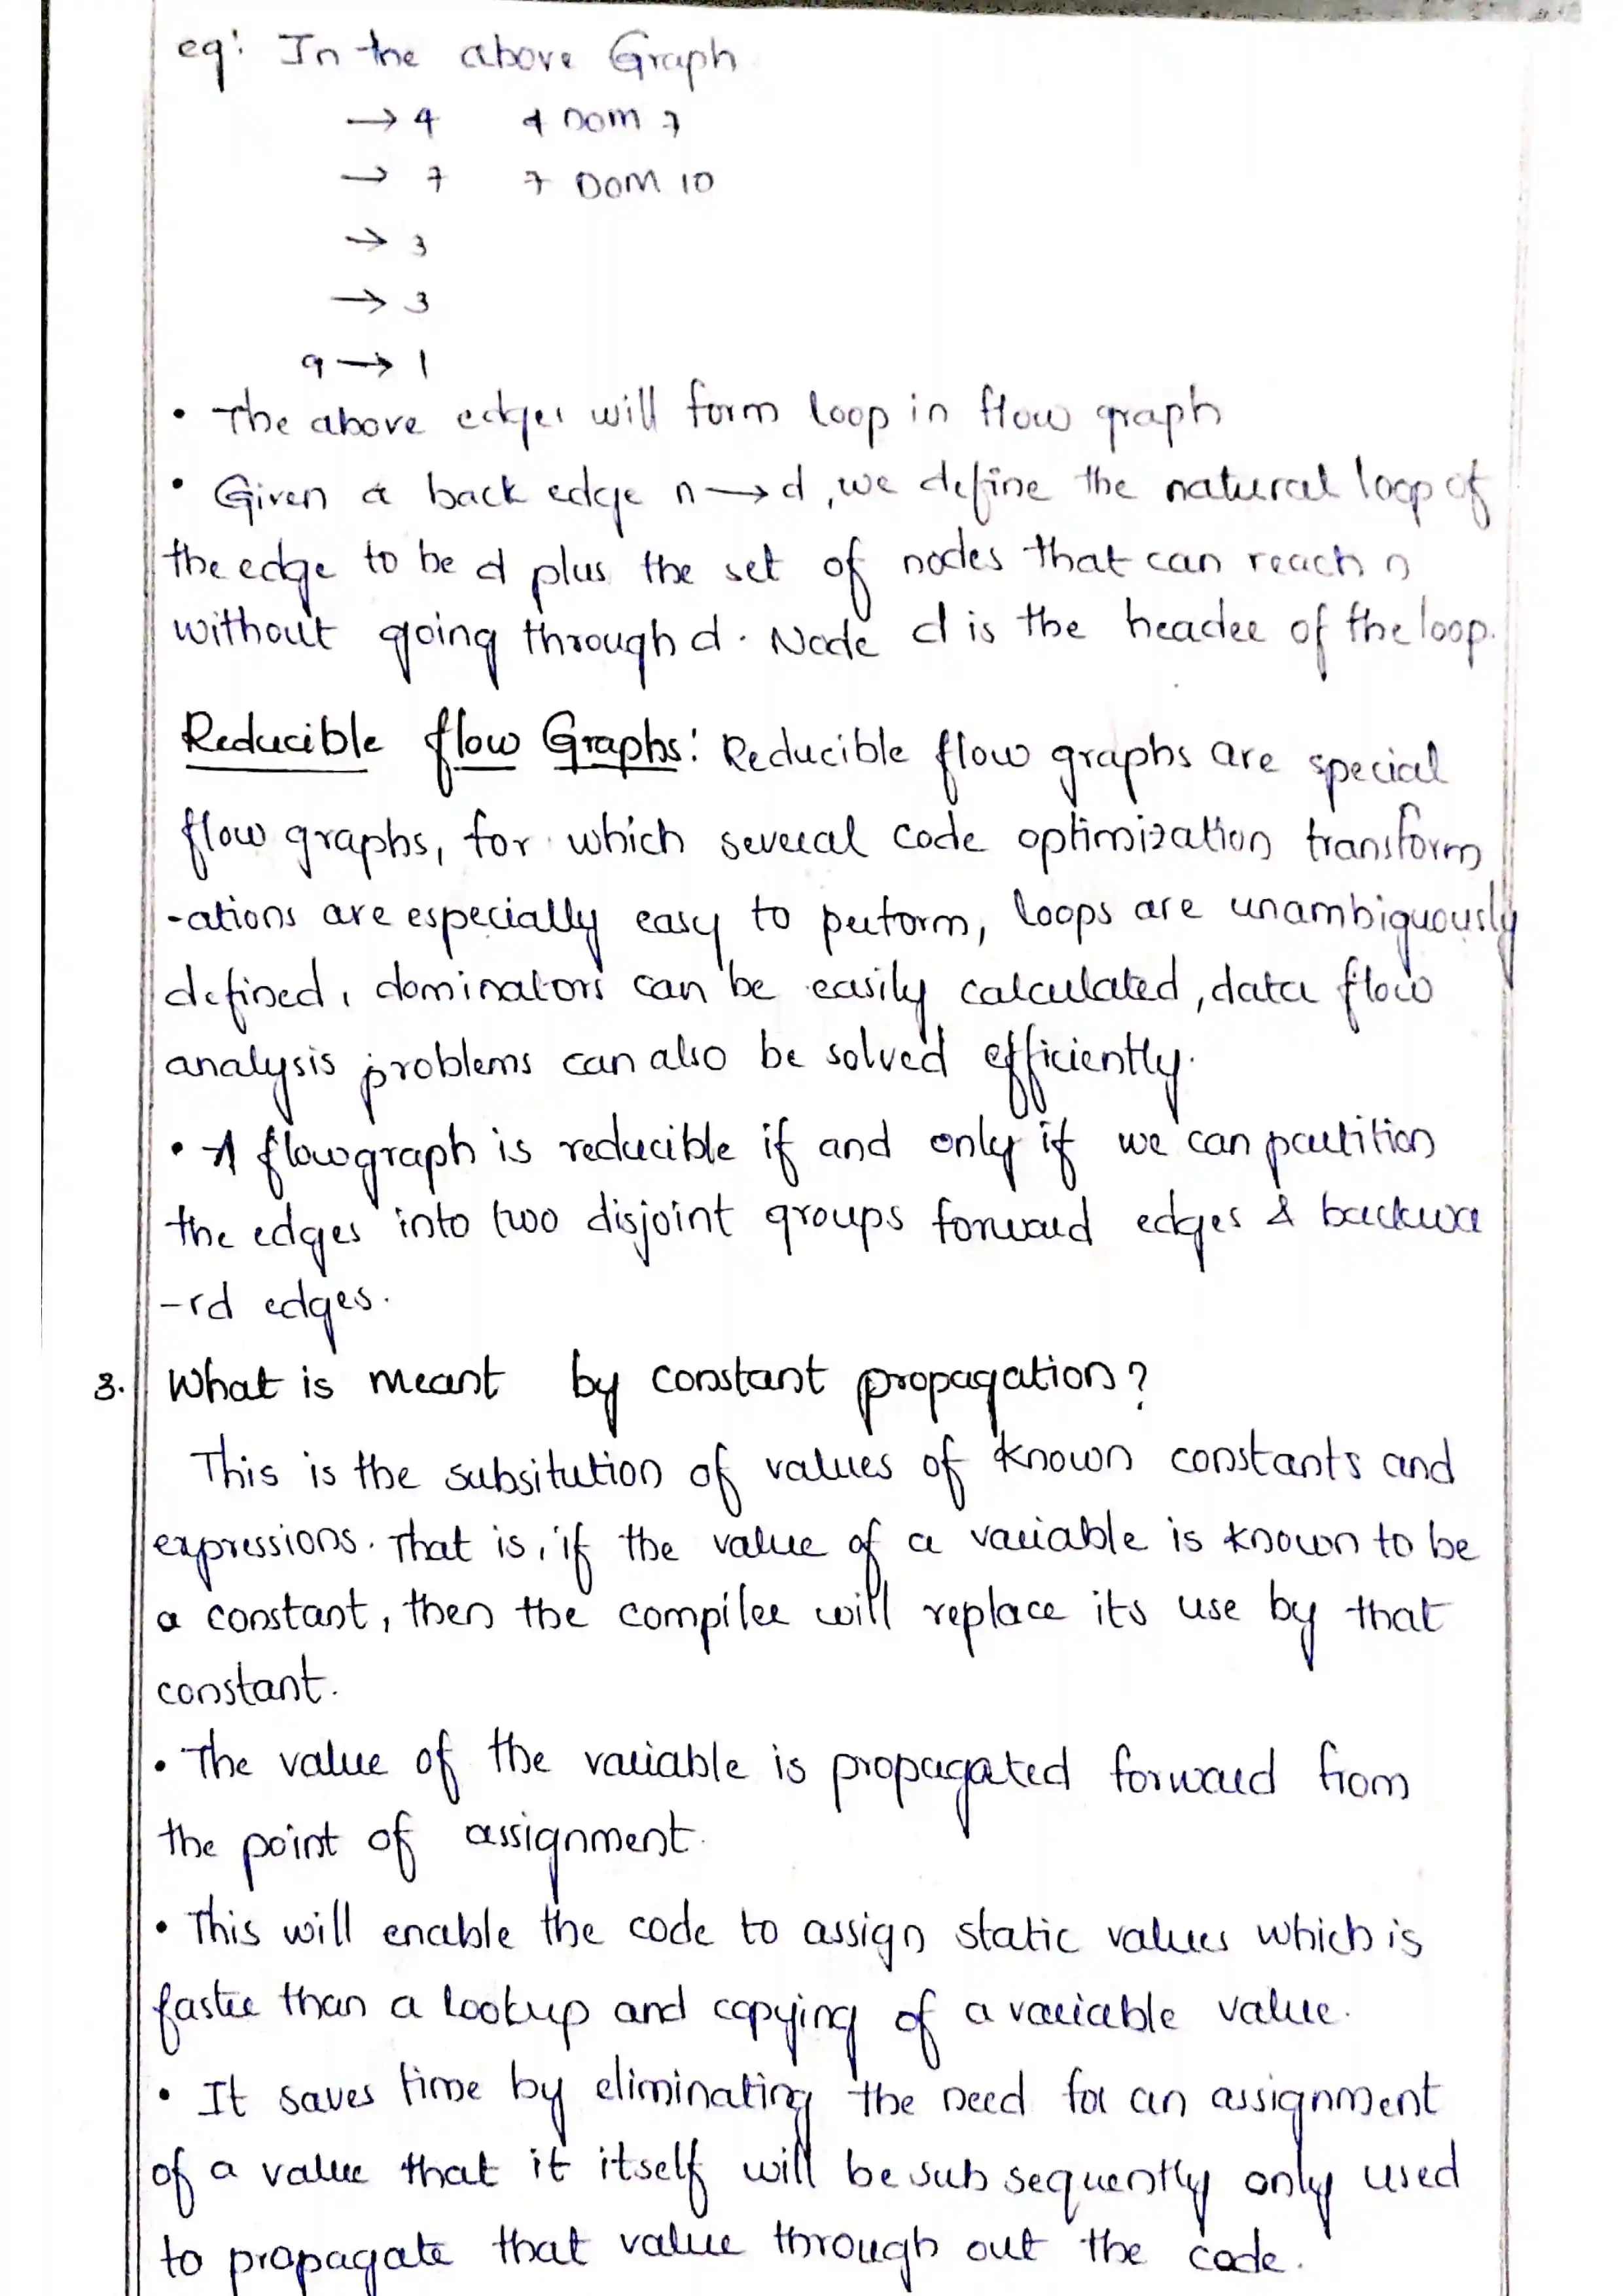 eg: In the above Graph
→ 4 4 DOM 7
→ 7 7 DOM 10
→ 3
→ 3
9 → 1
• The above edges will form loop in flow graph
• Given a back edge n → d, we define the natural loop of
the edge to be d plus the set of nodes that can reach n
without going through d. Node d is the header of the loop.
Reducible flow Graphs: Reducible flow graphs are special
flow graphs, for which several code optimization transform
-ations are especially easy to perform, loops are unambiguously
defined, dominators can be easily calculated, data flow
analysis problems can also be solved efficiently.
• A flowgraph is reducible if and only if we can partition
the edges into two disjoint groups forward edges & backwa
-rd edges.
3. What is meant by constant propagation?
This is the subsitution of values of known constants and
expressions. That is, if the value of a variable is known to be
a constant, then the compiler will replace its use by that
constant.
• The value of the variable is propagated forward from
the point of assignment.
• This will enable the code to assign static values which is
faster than a lookup and copying of a variable value.
• It saves time by eliminating the need for an assignment
of a value that it itself will be sub sequently only used
to propagate that value through out the code.